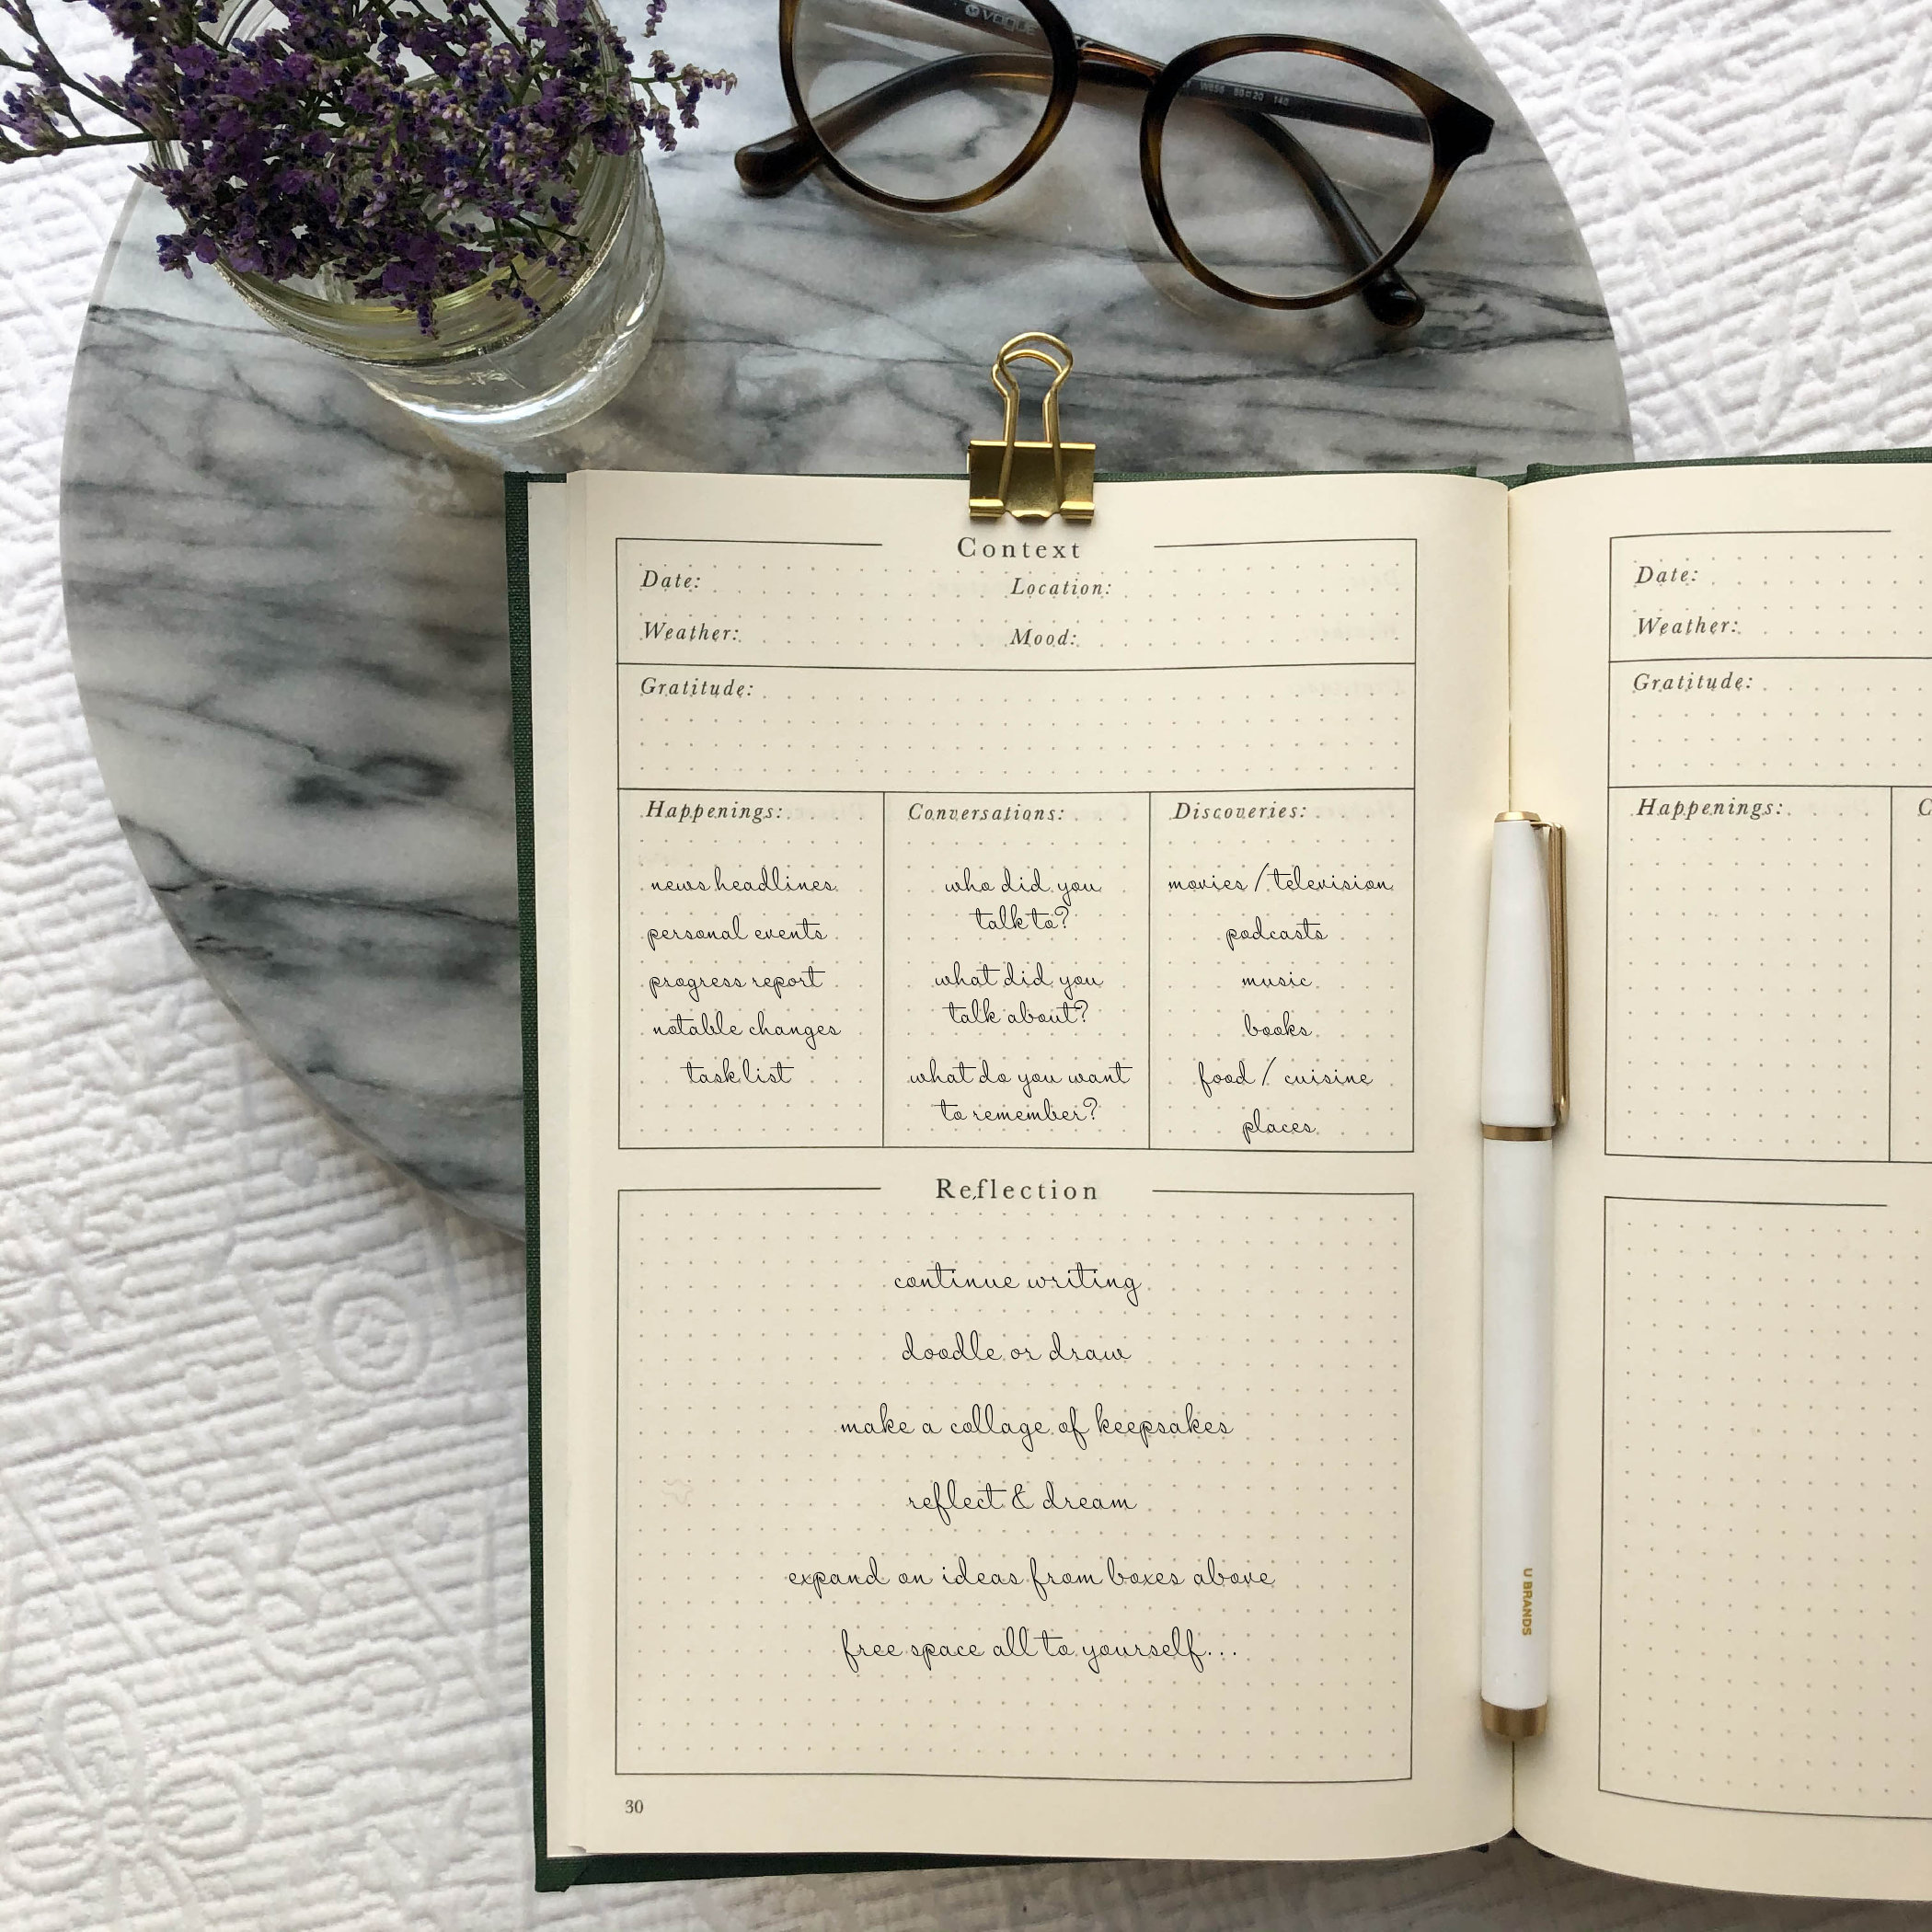 VOGUE
Context
Date:
Location:
Weather:
Mood:
Gratitude:
Happenings:
news headlines
personal events
progress report
notable changes
task list
Conversations:
who did you
talk to?
what did you
talk about?
what do you want
to remember?
Discoveries:
movies / television
podcasts
music
books
food / cuisine
places
Reflection
continue writing
doodle or draw
make a collage of keepsakes
reflect & dream
expand on ideas from boxes above
free space all to yourself...
30
U BRANDS
Date:
Weather:
Gratitude:
Happenings:
C